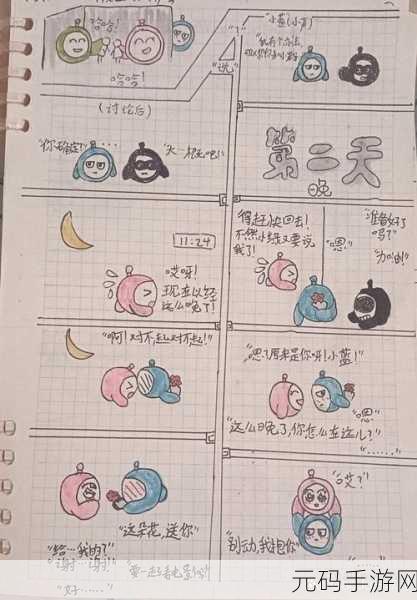 哈哈!
哈哈!
(讨论后)
"你确定?"……
"说"
"小蓝(小声)
第二天
晚
11:24
哎呀!
现在以经
这么晚了!
得赶快回去!
不然小绿又要说
我了!
"嗯"
准备好了
吗?"
"加油!
"啊!对不起对不起!"
"嗯?原来是你呀!小蓝!
"嗯"
这么晚了,你怎么在这儿?"
"……"
"这朵花,送你"
"给…我的?
"谢…谢!
"要一起看电影吗?
"好……"
"哎?"
别动,我抱你"
元码手游网